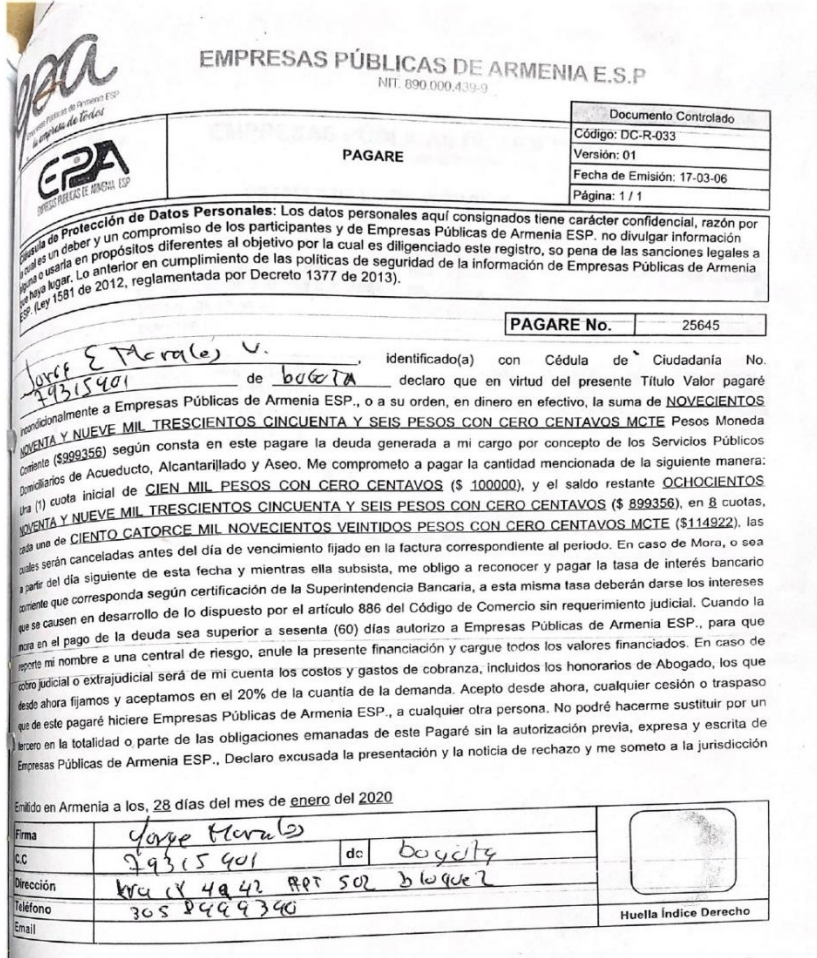 epa
Empresas Públicas de Armenia ESP
la empresa de todos
EMPRESAS PÚBLICAS DE ARMENIA E.S.P
NIT. 890.000.439-9
EPA
EMPRESAS PUBLICAS DE ARMENIA ESP
PAGARE
Documento Controlado
Código: DC-R-033
Versión: 01
Fecha de Emisión: 17-03-06
Página: 1 / 1
Cláusula de Protección de Datos Personales: Los datos personales aquí consignados tiene carácter confidencial, razón por
la cual es un deber y un compromiso de los participantes y de Empresas Públicas de Armenia ESP. no divulgar información
alguna o usarla en propósitos diferentes al objetivo por la cual es diligenciado este registro, so pena de las sanciones legales a
que haya lugar. Lo anterior en cumplimiento de las políticas de seguridad de la información de Empresas Públicas de Armenia
ESP. (Ley 1581 de 2012, reglamentada por Decreto 1377 de 2013).
PAGARE No. 25645
Jorge E Morales V. , identificado(a) con Cédula de Ciudadanía No.
79315401 de bogota declaro que en virtud del presente Título Valor pagaré
incondicionalmente a Empresas Públicas de Armenia ESP., o a su orden, en dinero en efectivo, la suma de NOVECIENTOS
NOVENTA Y NUEVE MIL TRESCIENTOS CINCUENTA Y SEIS PESOS CON CERO CENTAVOS MCTE Pesos Moneda
Corriente ($999356) según consta en este pagare la deuda generada a mi cargo por concepto de los Servicios Públicos
Domiciliarios de Acueducto, Alcantarillado y Aseo. Me comprometo a pagar la cantidad mencionada de la siguiente manera:
Una (1) cuota inicial de CIEN MIL PESOS CON CERO CENTAVOS ($ 100000), y el saldo restante OCHOCIENTOS
NOVENTA Y NUEVE MIL TRESCIENTOS CINCUENTA Y SEIS PESOS CON CERO CENTAVOS ($ 899356), en 8 cuotas,
cada una de CIENTO CATORCE MIL NOVECIENTOS VEINTIDOS PESOS CON CERO CENTAVOS MCTE ($114922), las
cuales serán canceladas antes del día de vencimiento fijado en la factura correspondiente al periodo. En caso de Mora, o sea
a partir del día siguiente de esta fecha y mientras ella subsista, me obligo a reconocer y pagar la tasa de interés bancario
corriente que corresponda según certificación de la Superintendencia Bancaria, a esta misma tasa deberán darse los intereses
que se causen en desarrollo de lo dispuesto por el artículo 886 del Código de Comercio sin requerimiento judicial. Cuando la
mora en el pago de la deuda sea superior a sesenta (60) días autorizo a Empresas Públicas de Armenia ESP., para que
reporte mi nombre a una central de riesgo, anule la presente financiación y cargue todos los valores financiados. En caso de
cobro judicial o extrajudicial será de mi cuenta los costos y gastos de cobranza, incluidos los honorarios de Abogado, los que
desde ahora fijamos y aceptamos en el 20% de la cuantía de la demanda. Acepto desde ahora, cualquier cesión o traspaso
que de este pagaré hiciere Empresas Públicas de Armenia ESP., a cualquier otra persona. No podré hacerme sustituir por un
tercero en la totalidad o parte de las obligaciones emanadas de este Pagaré sin la autorización previa, expresa y escrita de
Empresas Públicas de Armenia ESP., Declaro excusada la presentación y la noticia de rechazo y me someto a la jurisdicción
Emitido en Armenia a los, 28 días del mes de enero del 2020
Firma Yorge Morales
C.C 79315401 de bogota
Dirección 49 42 APT 502 bloque 2
Teléfono 305 8449390
Email
Huella Índice Derecho